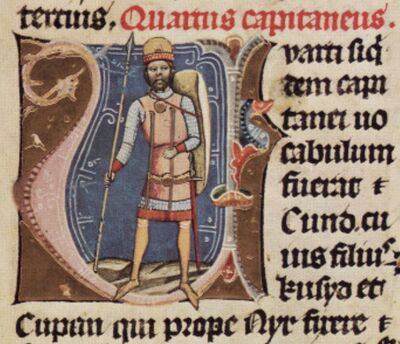 tercius. Quartus capitaneus.
uarti siq
dem capi
tanei uo
cabulum
fuerat &
Cund. cu
ius filius
kusyd et
Cupan qui prope Nyr fuere &